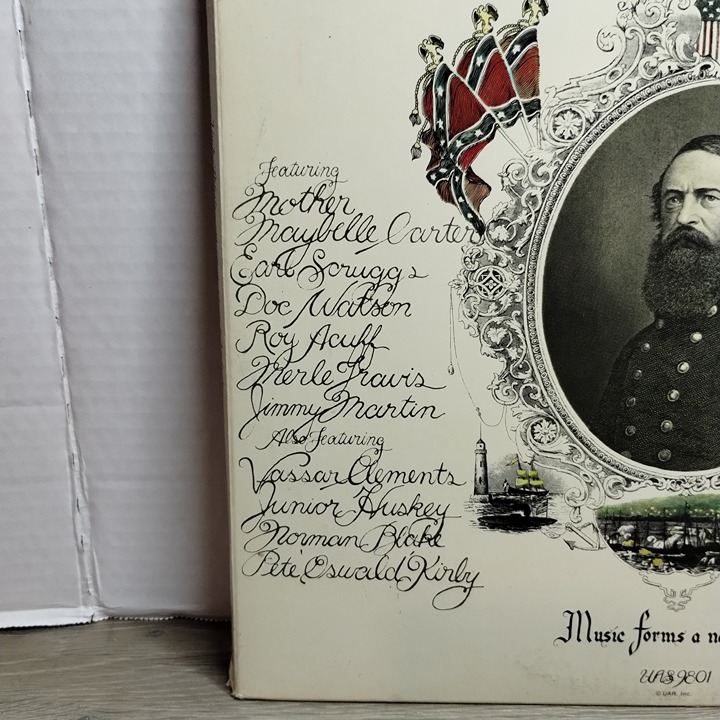 Featuring
Mother
Maybelle Carter
Earl Scruggs
Doc Watson
Roy Acuff
Merle Travis
Jimmy Martin
Also Featuring
Vassar Clements
Junior Huskey
Norman Blake
Pete Oswald Kirby
Music forms a
UAS 9801
© UAR, Inc.